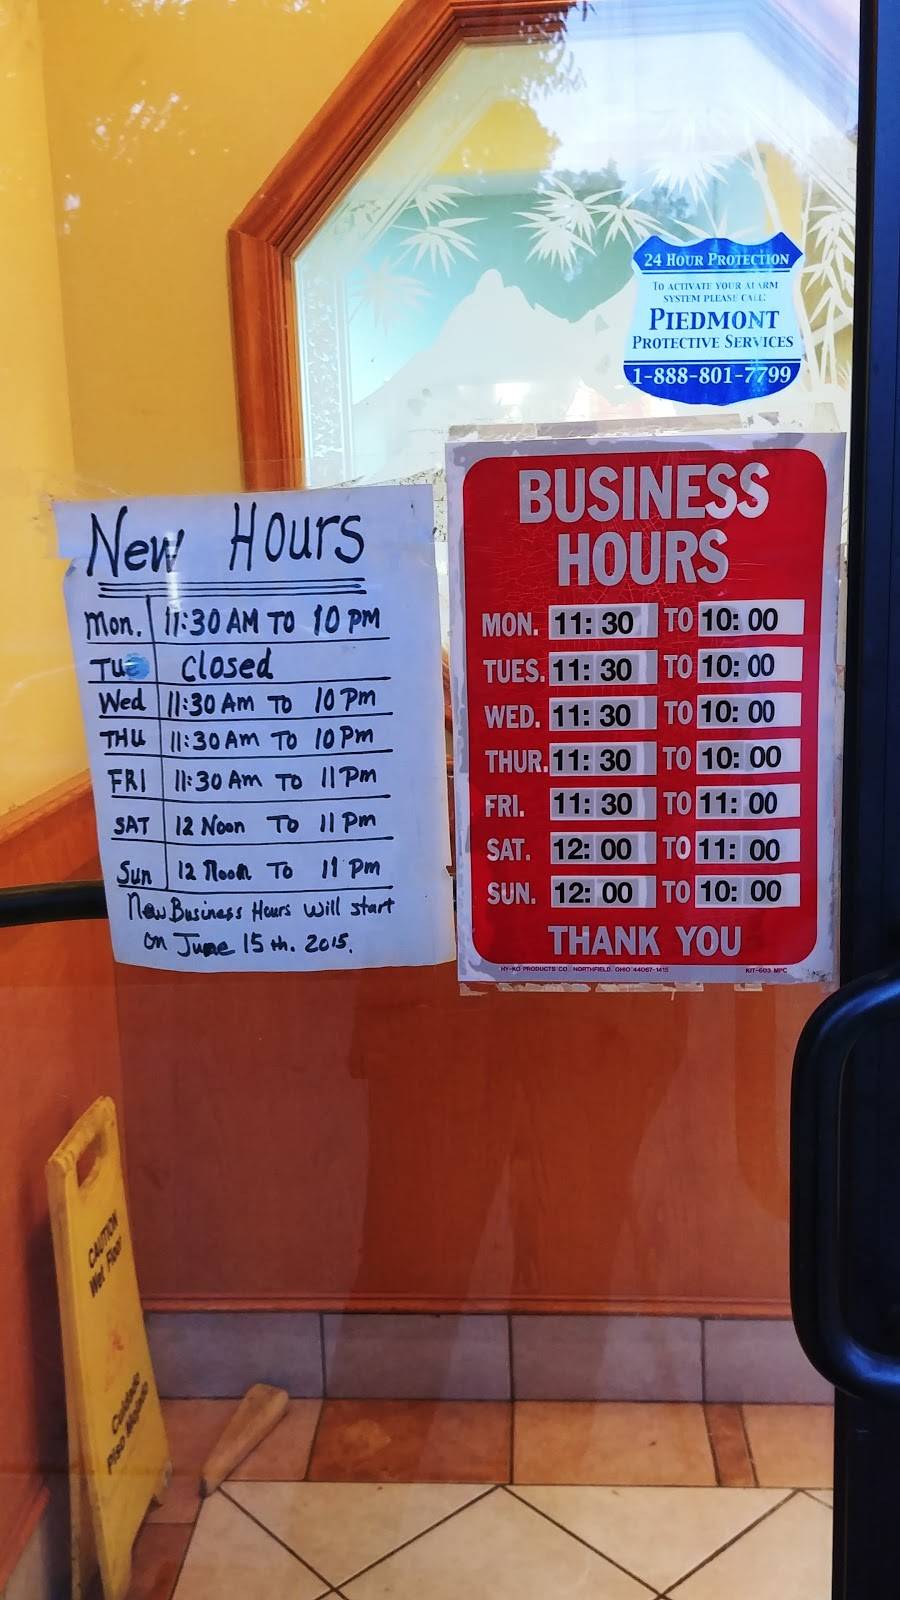 24 HOUR PROTECTION
TO ACTIVATE YOUR ALARM
SYSTEM PLEASE CALL:
PIEDMONT
PROTECTIVE SERVICES
1-888-801-7799
New Hours
Mon. 11:30 AM TO 10 PM
TUE Closed
Wed 11:30 Am To 10 Pm
THU 11:30 Am To 10 Pm
FRI 11:30 Am To 11 Pm
SAT 12 Noon To 11 Pm
Sun 12 Noon To 11 Pm
New Business Hours will start
on June 15th. 2015.
BUSINESS
HOURS
MON. 11: 30 TO 10: 00
TUES. 11: 30 TO 10: 00
WED. 11: 30 TO 10: 00
THUR. 11: 30 TO 10: 00
FRI. 11: 30 TO 11: 00
SAT. 12: 00 TO 11: 00
SUN. 12: 00 TO 10: 00
THANK YOU
HY-KO PRODUCTS CO NORTHFIELD, OHIO 44067-1415 KIT-603 MPC
CAUTION
Wet Floor
Cuidado
Piso Mojado